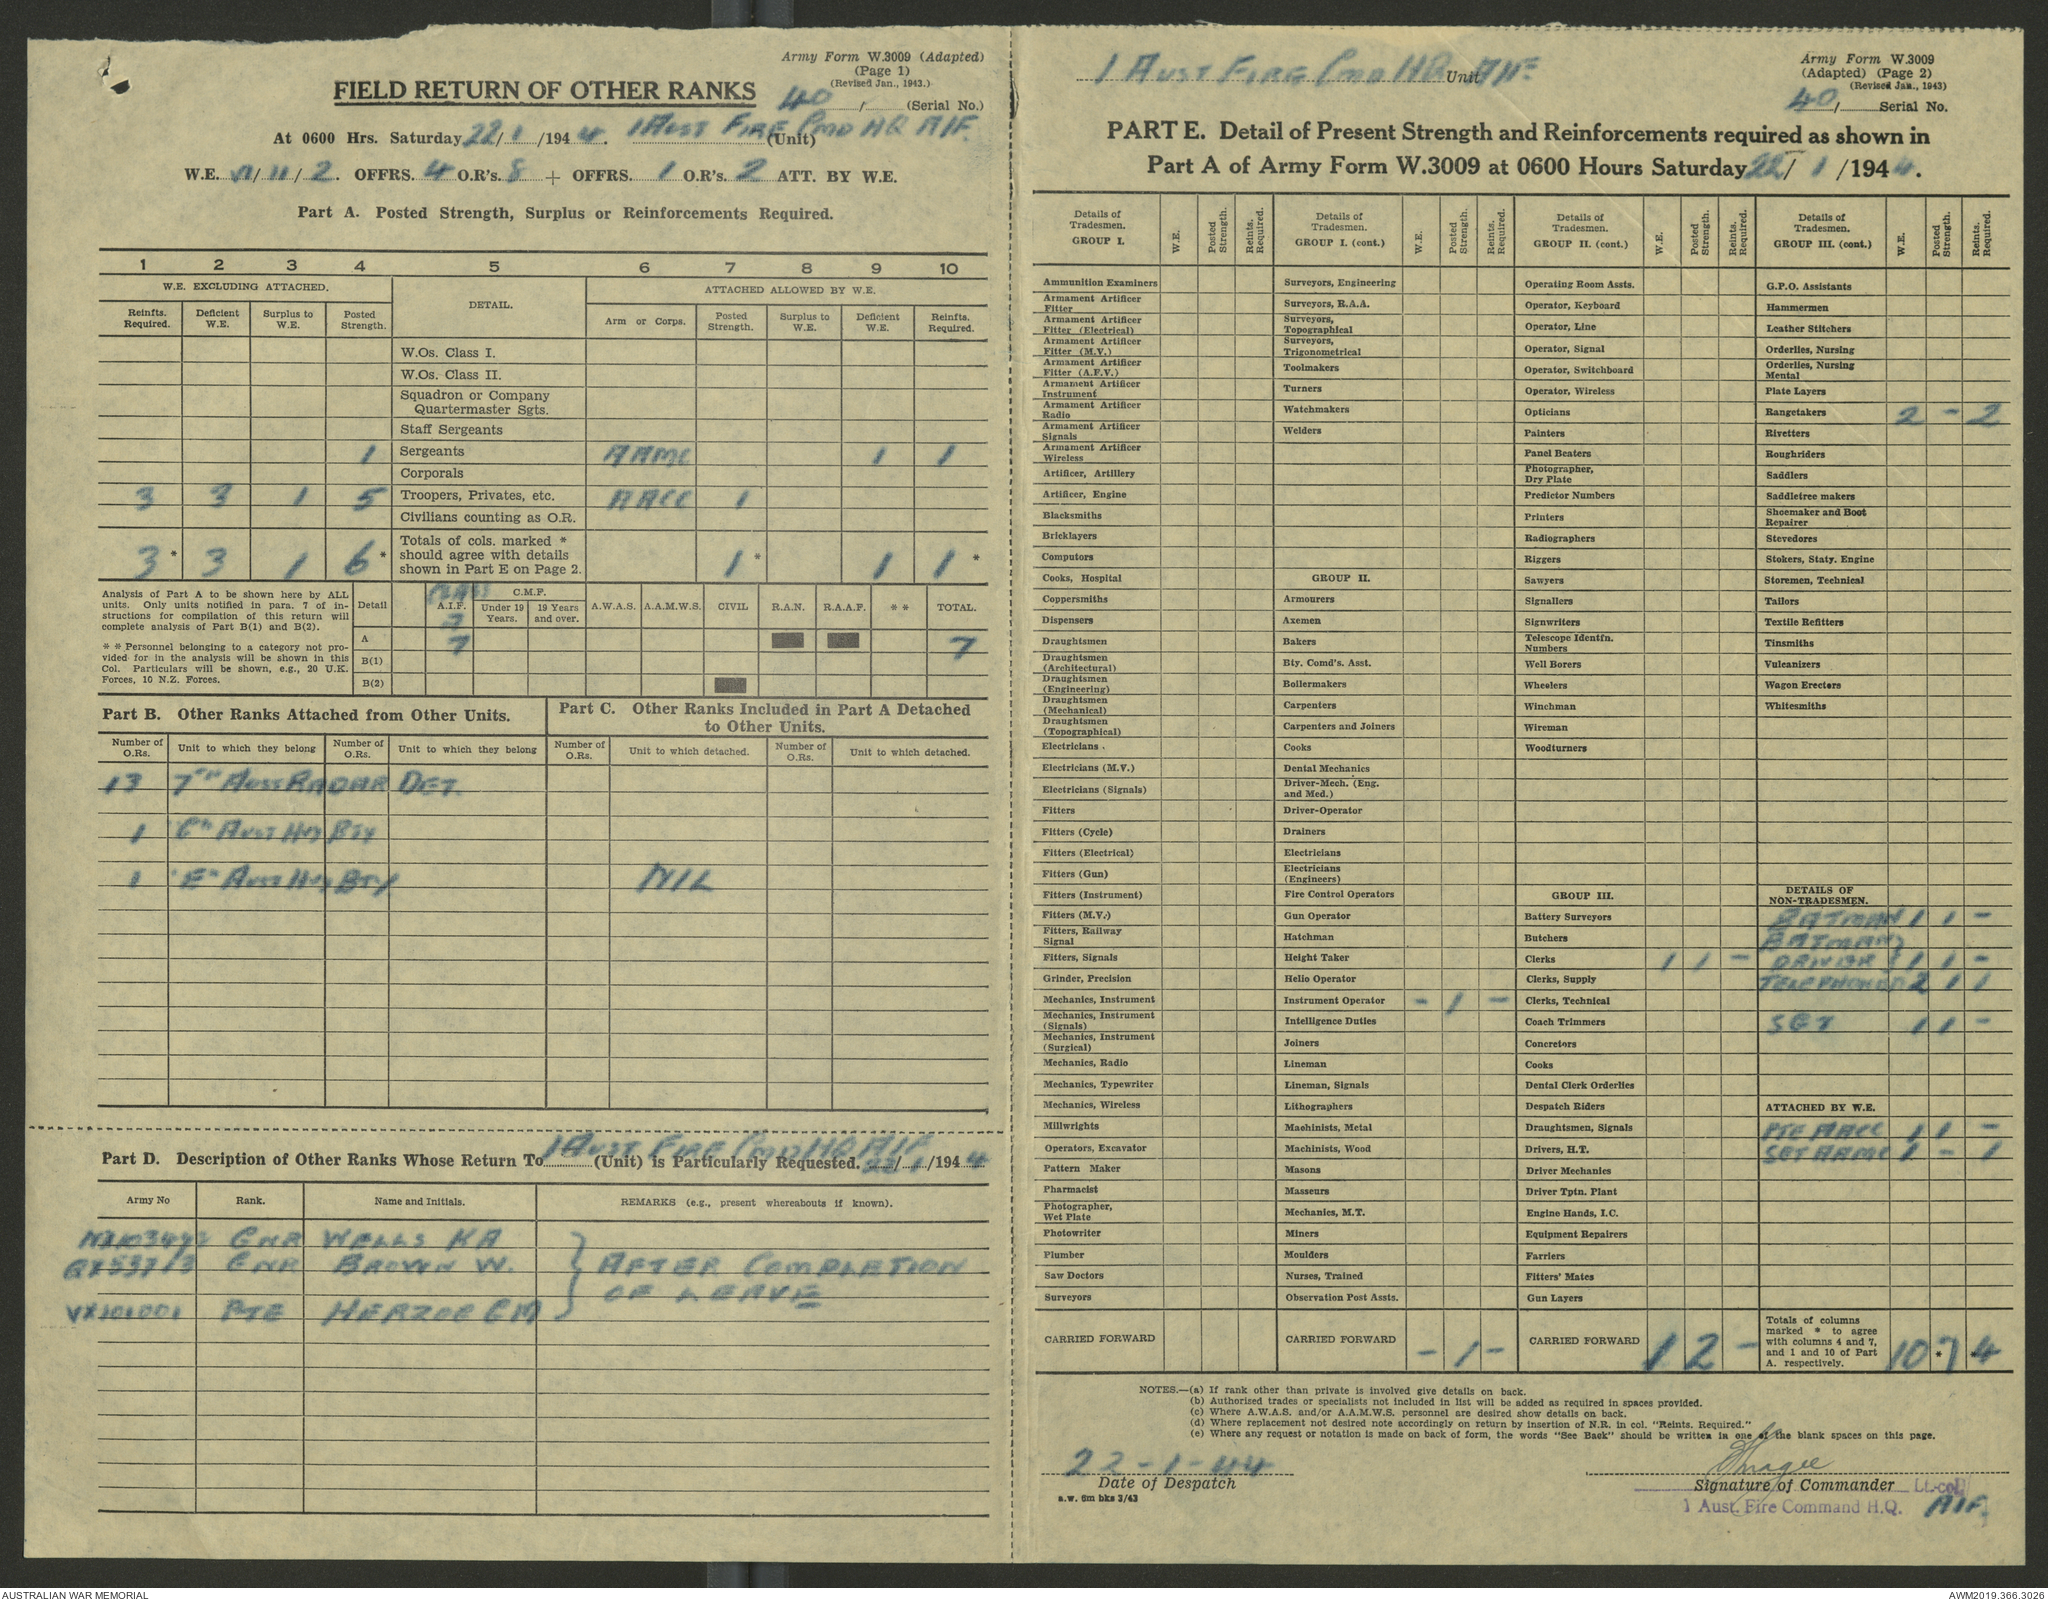 Army Form W.3009 (Adapted)
(Page 1)
(Revised Jan., 1943.)
FIELD RETURN OF OTHER RANKS
40 / (Serial No.)
At 0600 Hrs. Saturday 22/1/1944. 1 AUST FIRE CMD HQ AIF. (Unit)
W.E. VI/II/2. OFFRS. 4 O.R's. 8 + OFFRS. 1 O.R's. 2 ATT. BY W.E.
Part A. Posted Strength, Surplus or Reinforcements Required.
1 2 3 4 5 6 7 8 9 10
W.E. EXCLUDING ATTACHED. DETAIL. ATTACHED ALLOWED BY W.E.
Reinfts. Required. Deficient W.E. Surplus to W.E. Posted Strength. Arm or Corps. Posted Strength. Surplus to W.E. Deficient W.E. Reinfts. Required.
W.Os. Class I.
W.Os. Class II.
Squadron or Company Quartermaster Sgts.
Staff Sergeants
1 Sergeants AAMC 1 1
Corporals
3 3 1 5 Troopers, Privates, etc. AACC 1
Civilians counting as O.R.
3 * 3 1 6 * Totals of cols. marked * should agree with details shown in Part E on Page 2. 1 * 1 1 *
Analysis of Part A to be shown here by ALL units. Only units notified in para. 7 of instructions for compilation of this return will complete analysis of Part B(1) and B(2).
* * Personnel belonging to a category not provided for in the analysis will be shown in this Col. Particulars will be shown, e.g., 20 U.K. Forces, 10 N.Z. Forces.
Detail A.I.F. C.M.F. Under 19 Years. 19 Years and over. A.W.A.S. A.A.M.W.S. CIVIL R.A.N. R.A.A.F. * * TOTAL.
A 7 7
B(1)
B(2)
Part B. Other Ranks Attached from Other Units.
Part C. Other Ranks Included in Part A Detached to Other Units.
Number of O.Rs. Unit to which they belong Number of O.Rs. Unit to which they belong Number of O.Rs. Unit to which detached. Number of O.Rs. Unit to which detached.
13 7TH AUST RADAR DET.
1 "C" AUST HVY BTY
1 "E" AUST HVY BTY NIL
Part D. Description of Other Ranks Whose Return To 1 AUST FIRE CMD HQ AIF (Unit) is Particularly Requested. 22/1/1944
Army No Rank. Name and Initials. REMARKS (e.g., present whereabouts if known).
GNR WELLS KA
GNR BROWN W. AFTER COMPLETION
OF LEAVE
VX101001 PTE HERZOG
1 AUST FIRE CMD HQ Unit AIF
Army Form W.3009
(Adapted) (Page 2)
(Revised Jan., 1943)
40/ Serial No.
PART E. Detail of Present Strength and Reinforcements required as shown in
Part A of Army Form W.3009 at 0600 Hours Saturday 22/1/1944.
Details of Tradesmen. GROUP I. W.E. Posted Strength. Reints. Required.
Ammunition Examiners
Armament Artificer Fitter
Armament Artificer Fitter (Electrical)
Armament Artificer Fitter (M.V.)
Armament Artificer Fitter (A.F.V.)
Armament Artificer Instrument
Armament Artificer Radio
Armament Artificer Signals
Armament Artificer Wireless
Artificer, Artillery
Artificer, Engine
Blacksmiths
Bricklayers
Computors
Cooks, Hospital
Coppersmiths
Dispensers
Draughtsmen
Draughtsmen (Architectural)
Draughtsmen (Engineering)
Draughtsmen (Mechanical)
Draughtsmen (Topographical)
Electricians
Electricians (M.V.)
Electricians (Signals)
Fitters
Fitters (Cycle)
Fitters (Electrical)
Fitters (Gun)
Fitters (Instrument)
Fitters (M.V.)
Fitters, Railway Signal
Fitters, Signals
Grinder, Precision
Mechanics, Instrument
Mechanics, Instrument (Signals)
Mechanics, Instrument (Surgical)
Mechanics, Radio
Mechanics, Typewriter
Mechanics, Wireless
Millwrights
Operators, Excavator
Pattern Maker
Pharmacist
Photographer, Wet Plate
Photowriter
Plumber
Saw Doctors
Surveyors
CARRIED FORWARD
Details of Tradesmen. GROUP I. (cont.) W.E. Posted Strength. Reints. Required.
Surveyors, Engineering
Surveyors, R.A.A.
Surveyors, Topographical
Surveyors, Trigonometrical
Toolmakers
Turners
Watchmakers
Welders
GROUP II.
Armourers
Axemen
Bakers
Bty. Comd's. Asst.
Boilermakers
Carpenters
Carpenters and Joiners
Cooks
Dental Mechanics
Driver-Mech. (Eng. and Med.)
Driver-Operator
Drainers
Electricians
Electricians (Engineers)
Fire Control Operators
Gun Operator
Hatchman
Height Taker
Helio Operator
Instrument Operator - 1 -
Intelligence Duties
Joiners
Lineman
Lineman, Signals
Lithographers
Machinists, Metal
Machinists, Wood
Masons
Masseurs
Mechanics, M.T.
Miners
Moulders
Nurses, Trained
Observation Post Assts.
CARRIED FORWARD - 1 -
Details of Tradesmen. GROUP II. (cont.) W.E. Posted Strength. Reints. Required.
Operating Room Assts.
Operator, Keyboard
Operator, Line
Operator, Signal
Operator, Switchboard
Operator, Wireless
Opticians
Painters
Panel Beaters
Photographer, Dry Plate
Predictor Numbers
Printers
Radiographers
Riggers
Sawyers
Signallers
Signwriters
Telescope Identfn. Numbers
Well Borers
Wheelers
Winchman
Wireman
Woodturners
GROUP III.
Battery Surveyors
Butchers
Clerks 1 1 -
Clerks, Supply
Clerks, Technical
Coach Trimmers
Concretors
Cooks
Dental Clerk Orderlies
Despatch Riders
Draughtsmen, Signals
Drivers, H.T.
Driver Mechanics
Driver Tptn. Plant
Engine Hands, I.C.
Equipment Repairers
Farriers
Fitters' Mates
Gun Layers
CARRIED FORWARD 1 2 -
Details of Tradesmen. GROUP III. (cont.) W.E. Posted Strength. Reints. Required.
G.P.O. Assistants
Hammermen
Leather Stitchers
Orderlies, Nursing
Orderlies, Nursing Mental
Plate Layers
Rangetakers 2 - 2
Rivetters
Roughriders
Saddlers
Saddletree makers
Shoemaker and Boot Repairer
Stevedores
Stokers, Staty. Engine
Storemen, Technical
Tailors
Textile Refitters
Tinsmiths
Vulcanizers
Wagon Erectors
Whitesmiths
DETAILS OF NON-TRADESMEN.
BATMAN 1 1 -
BATMAN }
DRIVER } 1 1 -
2 1 1
SGT 1 1 -
ATTACHED BY W.E.
PTE AACC 1 1 -
SGT AAMC 1 - 1
Totals of columns marked * to agree with columns 4 and 7, and 1 and 10 of Part A. respectively. 10 * 7 * 4
NOTES.—(a) If rank other than private is involved give details on back.
(b) Authorised trades or specialists not included in list will be added as required in spaces provided.
(c) Where A.W.A.S. and/or A.A.M.W.S. personnel are desired show details on back.
(d) Where replacement not desired note accordingly on return by insertion of N.R. in col. "Reints. Required."
(e) Where any request or notation is made on back of form, the words "See Back" should be written in one of the blank spaces on this page.
22-1-44
Date of Despatch
a.w. 6m bks 3/43
Signature of Commander Lt-col
1 Aust. Fire Command H.Q. AIF.
AUSTRALIAN WAR MEMORIAL
AWM2019.366.3026